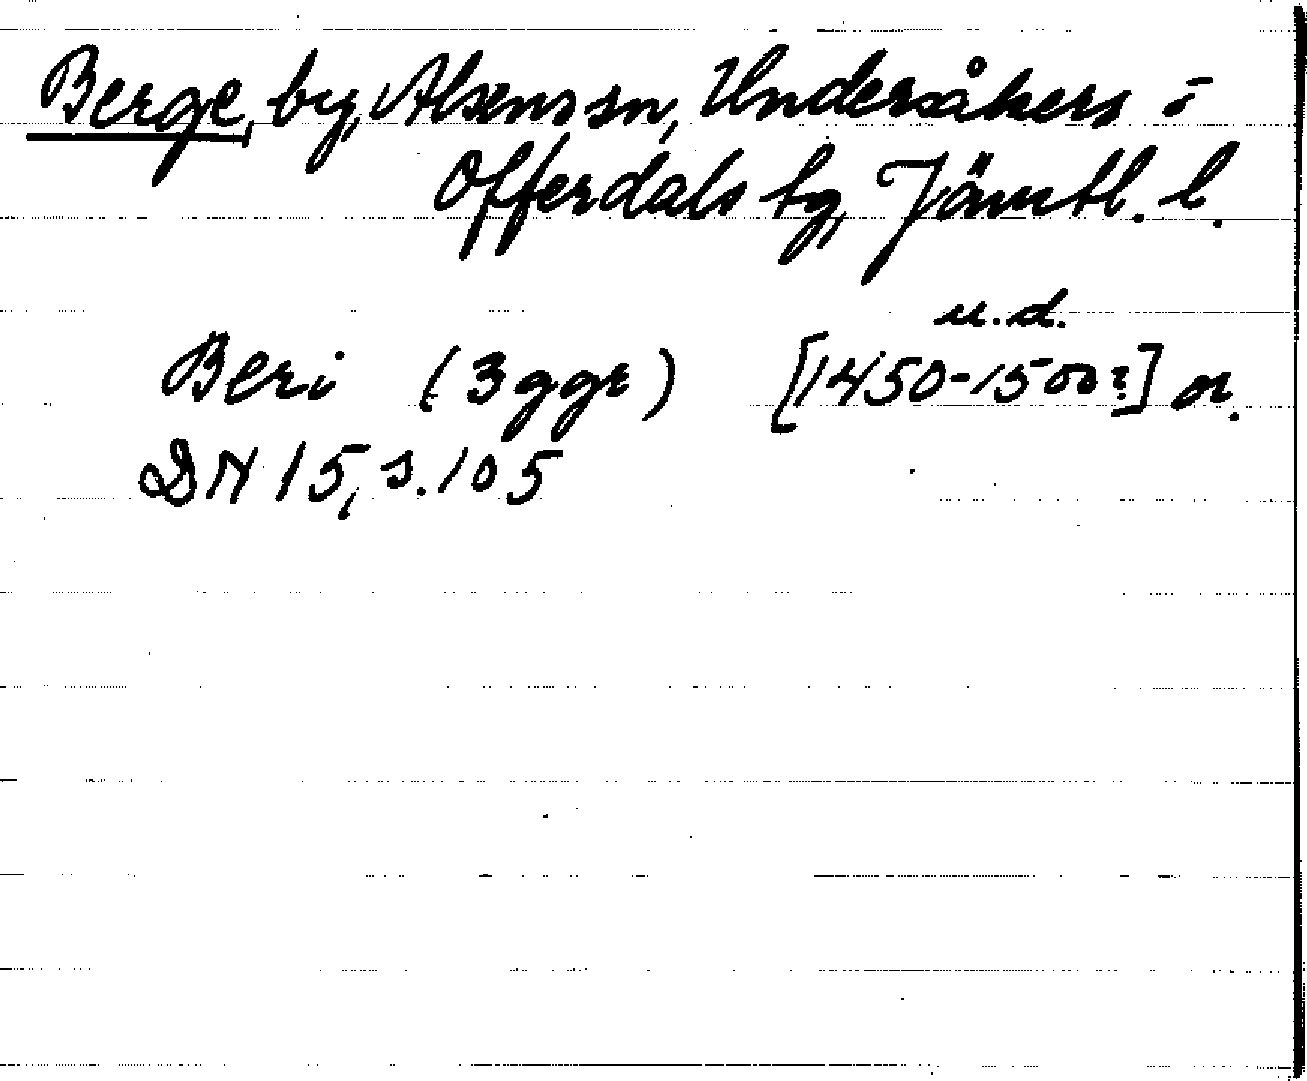 Berge, by, Alsens sn, Undersåkers o
Offerdals tg, Jämtl. l.
u.d.
Beri (3 ggr) [1450-1500?] or.
DN 15, s. 105